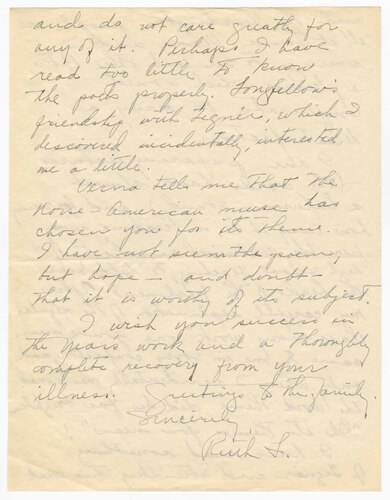 and do not care greatly for
any of it. Perhaps I have
read too little to know
the poets properly. Longfellow's
friendship with Tegnér, which I
discovered incidentally, interested
me a little.
Verna tells me that the
Norse American muse has
chosen you for its theme.
I have not seen the poem,
but hope — and doubt —
that it is worthy of its subject.
I wish you success in
the year's work and a thoroughly
complete recovery from your
illness. Greetings to the family.
Sincerely,
Ruth